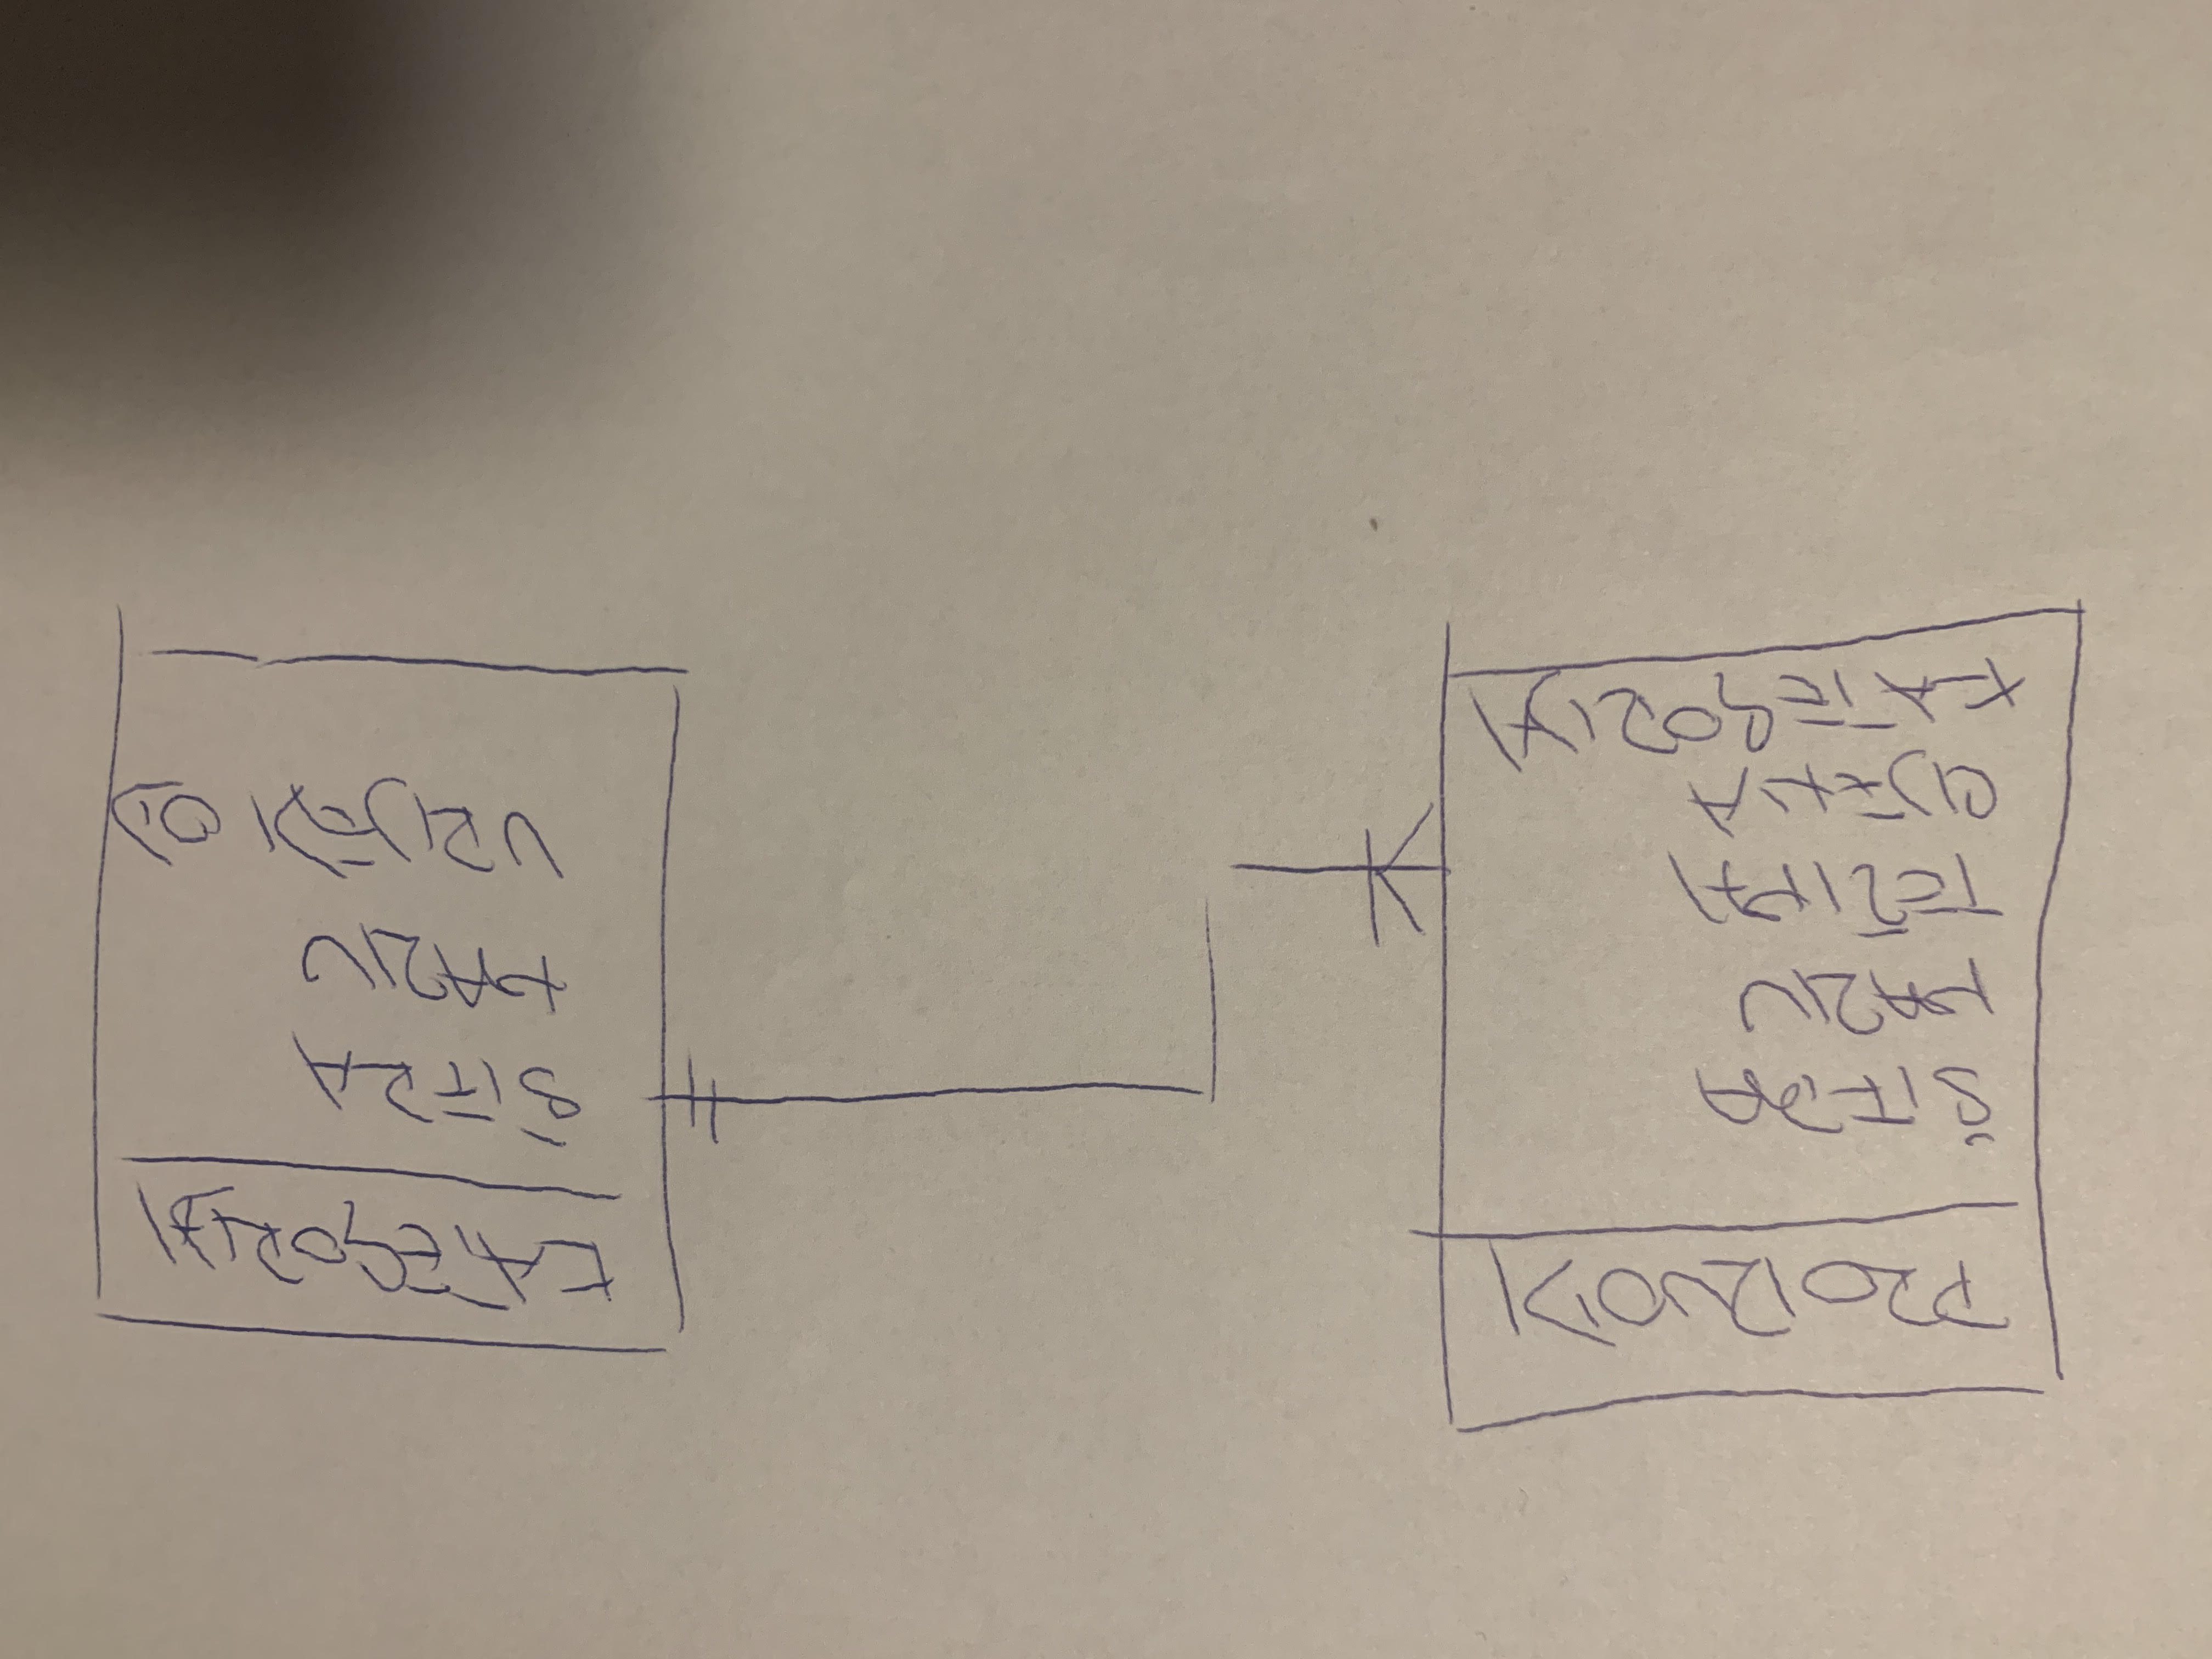 PROIZVODI
ŠIFRA
NAZIV
TEŽINA
CIJENA
KATEGORIJA
KATEGORIJA
ŠIFRA
NAZIV
VRIJEDI OD